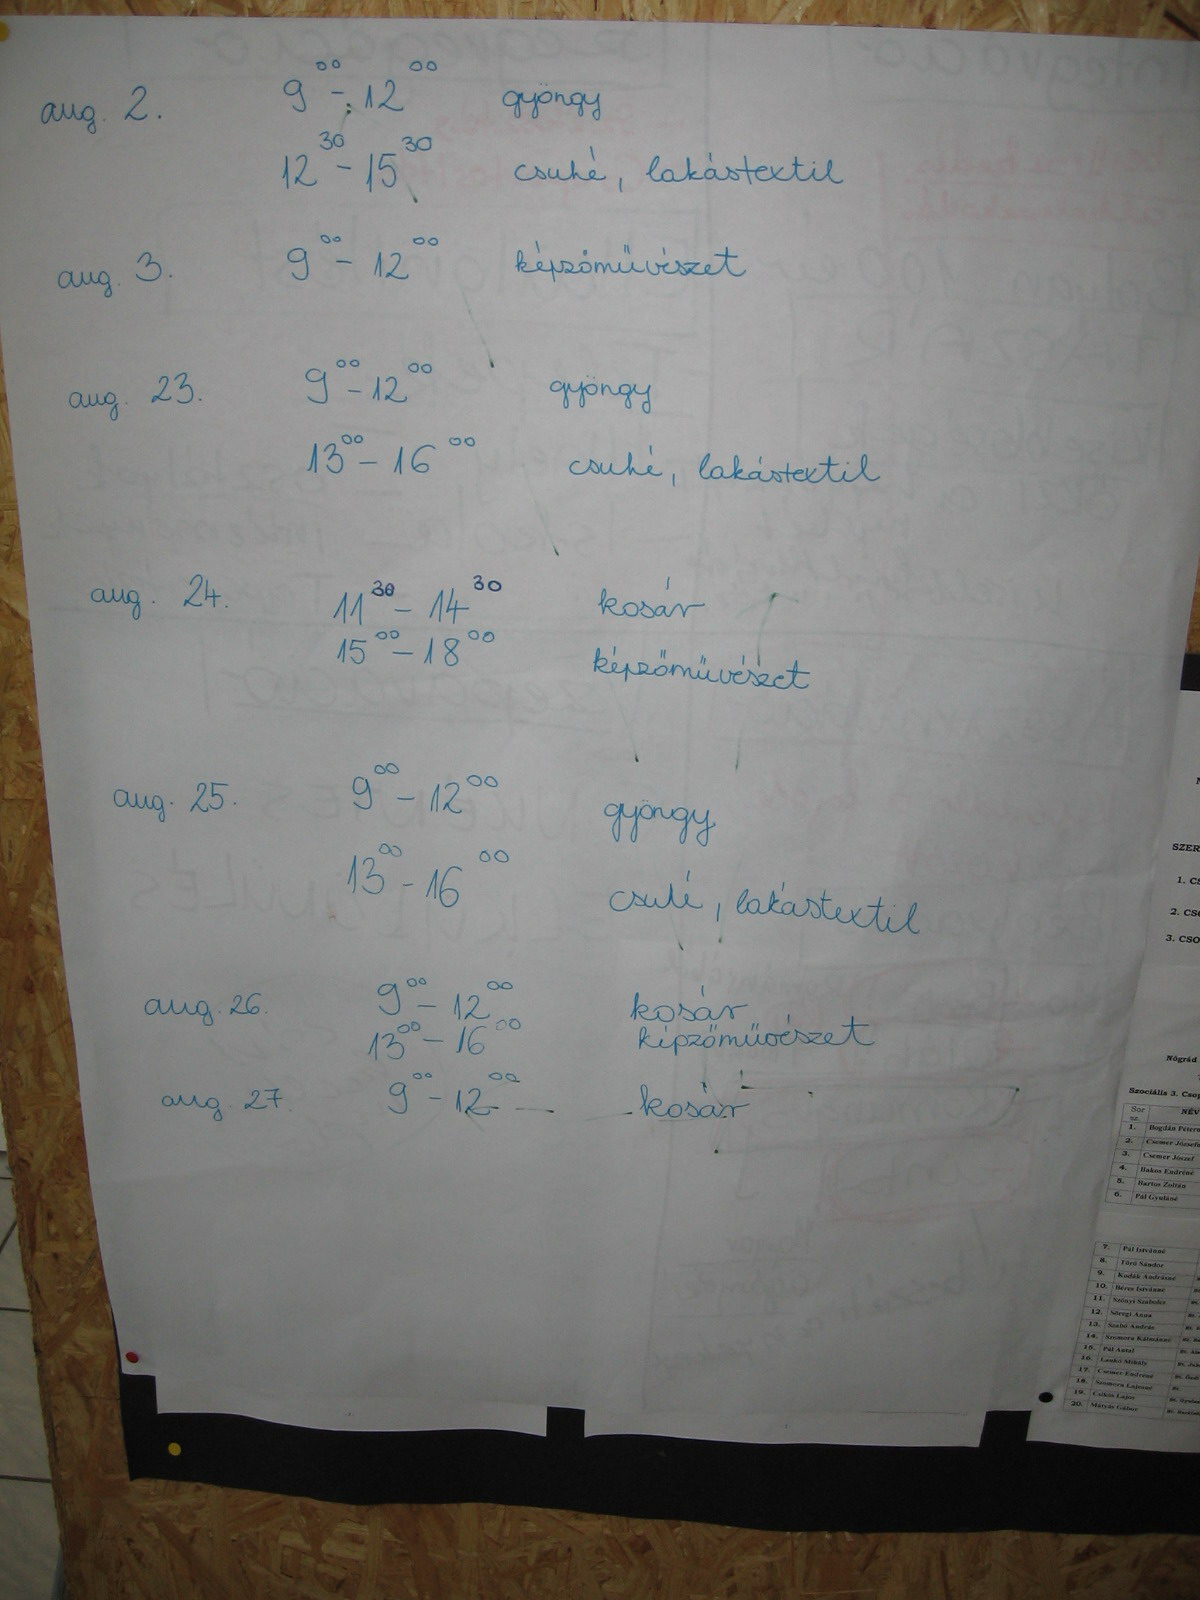 aug. 2. 9⁰⁰ - 12⁰⁰ gyöngy
12³⁰ - 15³⁰ csuhé, lakástextil
aug. 3. 9⁰⁰ - 12⁰⁰ képzőművészet
aug. 23. 9⁰⁰ - 12⁰⁰ gyöngy
13⁰⁰ - 16⁰⁰ csuhé, lakástextil
aug. 24. 11³⁰ - 14³⁰ kosár
15⁰⁰ - 18⁰⁰ képzőművészet
aug. 25. 9⁰⁰ - 12⁰⁰ gyöngy
13⁰⁰ - 16⁰⁰ csuhé, lakástextil
aug. 26. 9⁰⁰ - 12⁰⁰ kosár
13⁰⁰ - 16⁰⁰ képzőművészet
aug. 27. 9⁰⁰ - 12⁰⁰ kosár
SZER
1. CS
2. CSO
3. CSO
Nógrád
Szociális 3. Csop
Sor sz. NÉV
1. Bogdán Pétern
2. Csemer Józsefn
3. Csemer József
4. Bakos Endréné
5. Bartos Zoltán
6. Pál Gyuláné
7. Pál Istvánné
8. Törő Sándor
9. Kodák Andrásné
10. Béres Istvánné
11. Szőnyi Szabolcs
12. Sóregi Anna
13. Szabó András
14. Szomora Kálmánné
15. Pál Antal
16. Laukó Mihály
17. Csemer Endréné
18. Szomora Lajosné
19. Csikós Lajos
20. Mátyás Gábor